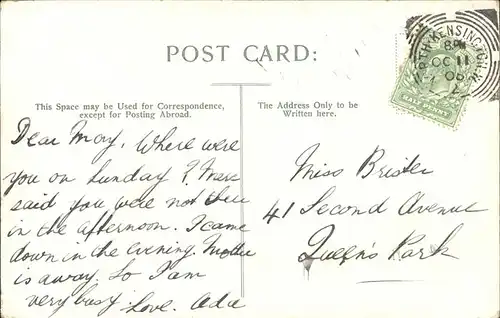 POST CARD:
NORTH KENSINGTON.W.
8 PM
OC 11
06
HALF PENNY
This Space may be Used for Correspondence,
except for Posting Abroad.
The Address Only to be
Written here.
Dear May, Where were
you on Sunday?
said you were not there
in the afternoon. I came
down in the evening. Mother
is away. So I am
very busy. Love. Ada
Miss Brister
41 Second Avenue
Queen's Park